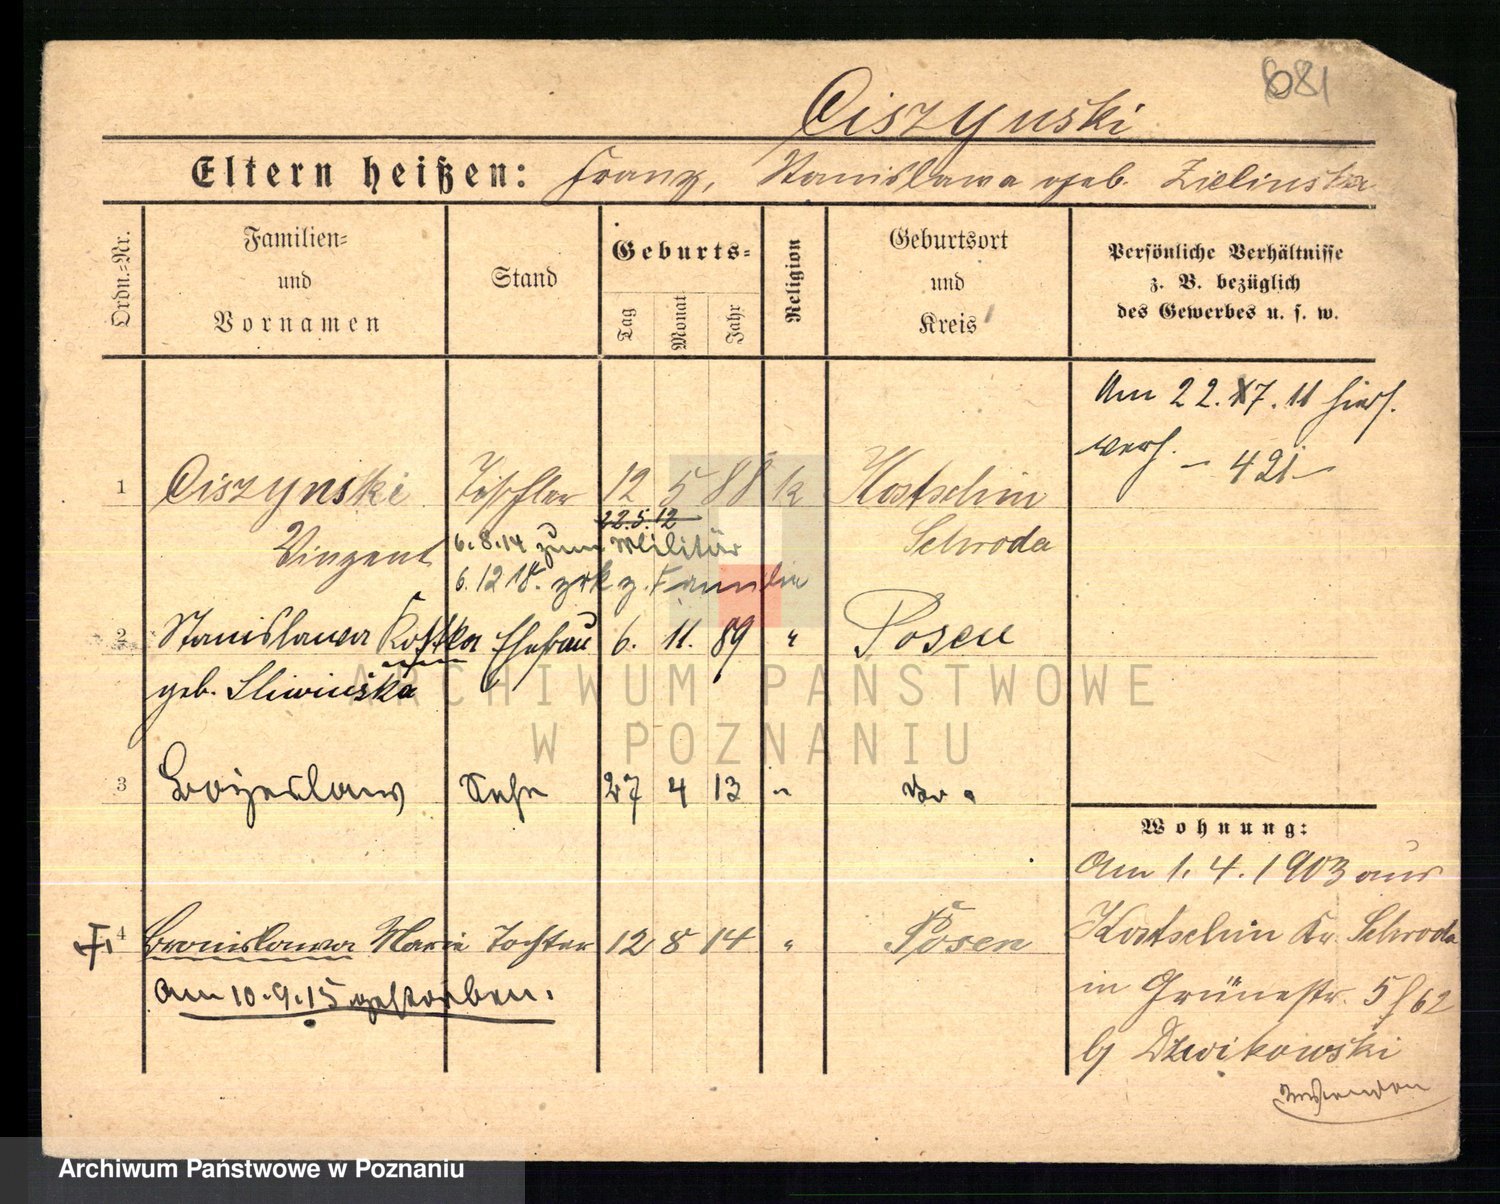 681
Ciszynski
Eltern heißen: Franz, Stanislawa geb. Zielinska
Ordn.-Nr.
Familien-
und
Vornamen
Stand
Geburts-
Tag
Monat
Jahr
Religion
Geburtsort
und
Kreis
Persönliche Verhältnisse
z. B. bezüglich
des Gewerbes u. s. w.
Am 22. 7. 11 hier
verh. - 421 -
1 Ciszynski Tischler 12 5 88 k Kostschin
22.5.12
Vinzent 6.8.14 zum Militär Schroda
6.12.18. zrk z. Familie
2 Stanislawa Kostka Ehefrau 6. 11. 89 " Posen
geb. Sliwinska
3 Bozeslaw Sohn 27 4 13 " do.
4 Bronislawa Marie Tochter 12 8 14 " Posen
Am 10.9.15 gestorben.
Wohnung:
Am 1. 4. 1903 aus
Kostschin Kr. Schroda
in Grünestr. 5 / 62
b/ Dzwikowski
ARCHIWUM PAŃSTWOWE
W POZNANIU
Archiwum Państwowe w Poznaniu